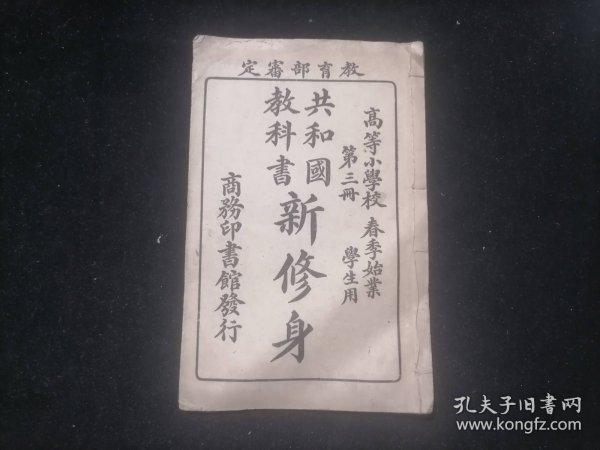 教育部審定
高等小學校 春季始業
第三冊 學生用
共和國
教科書
新修身
商務印書館發行
孔夫子旧书网
www.kongfz.com